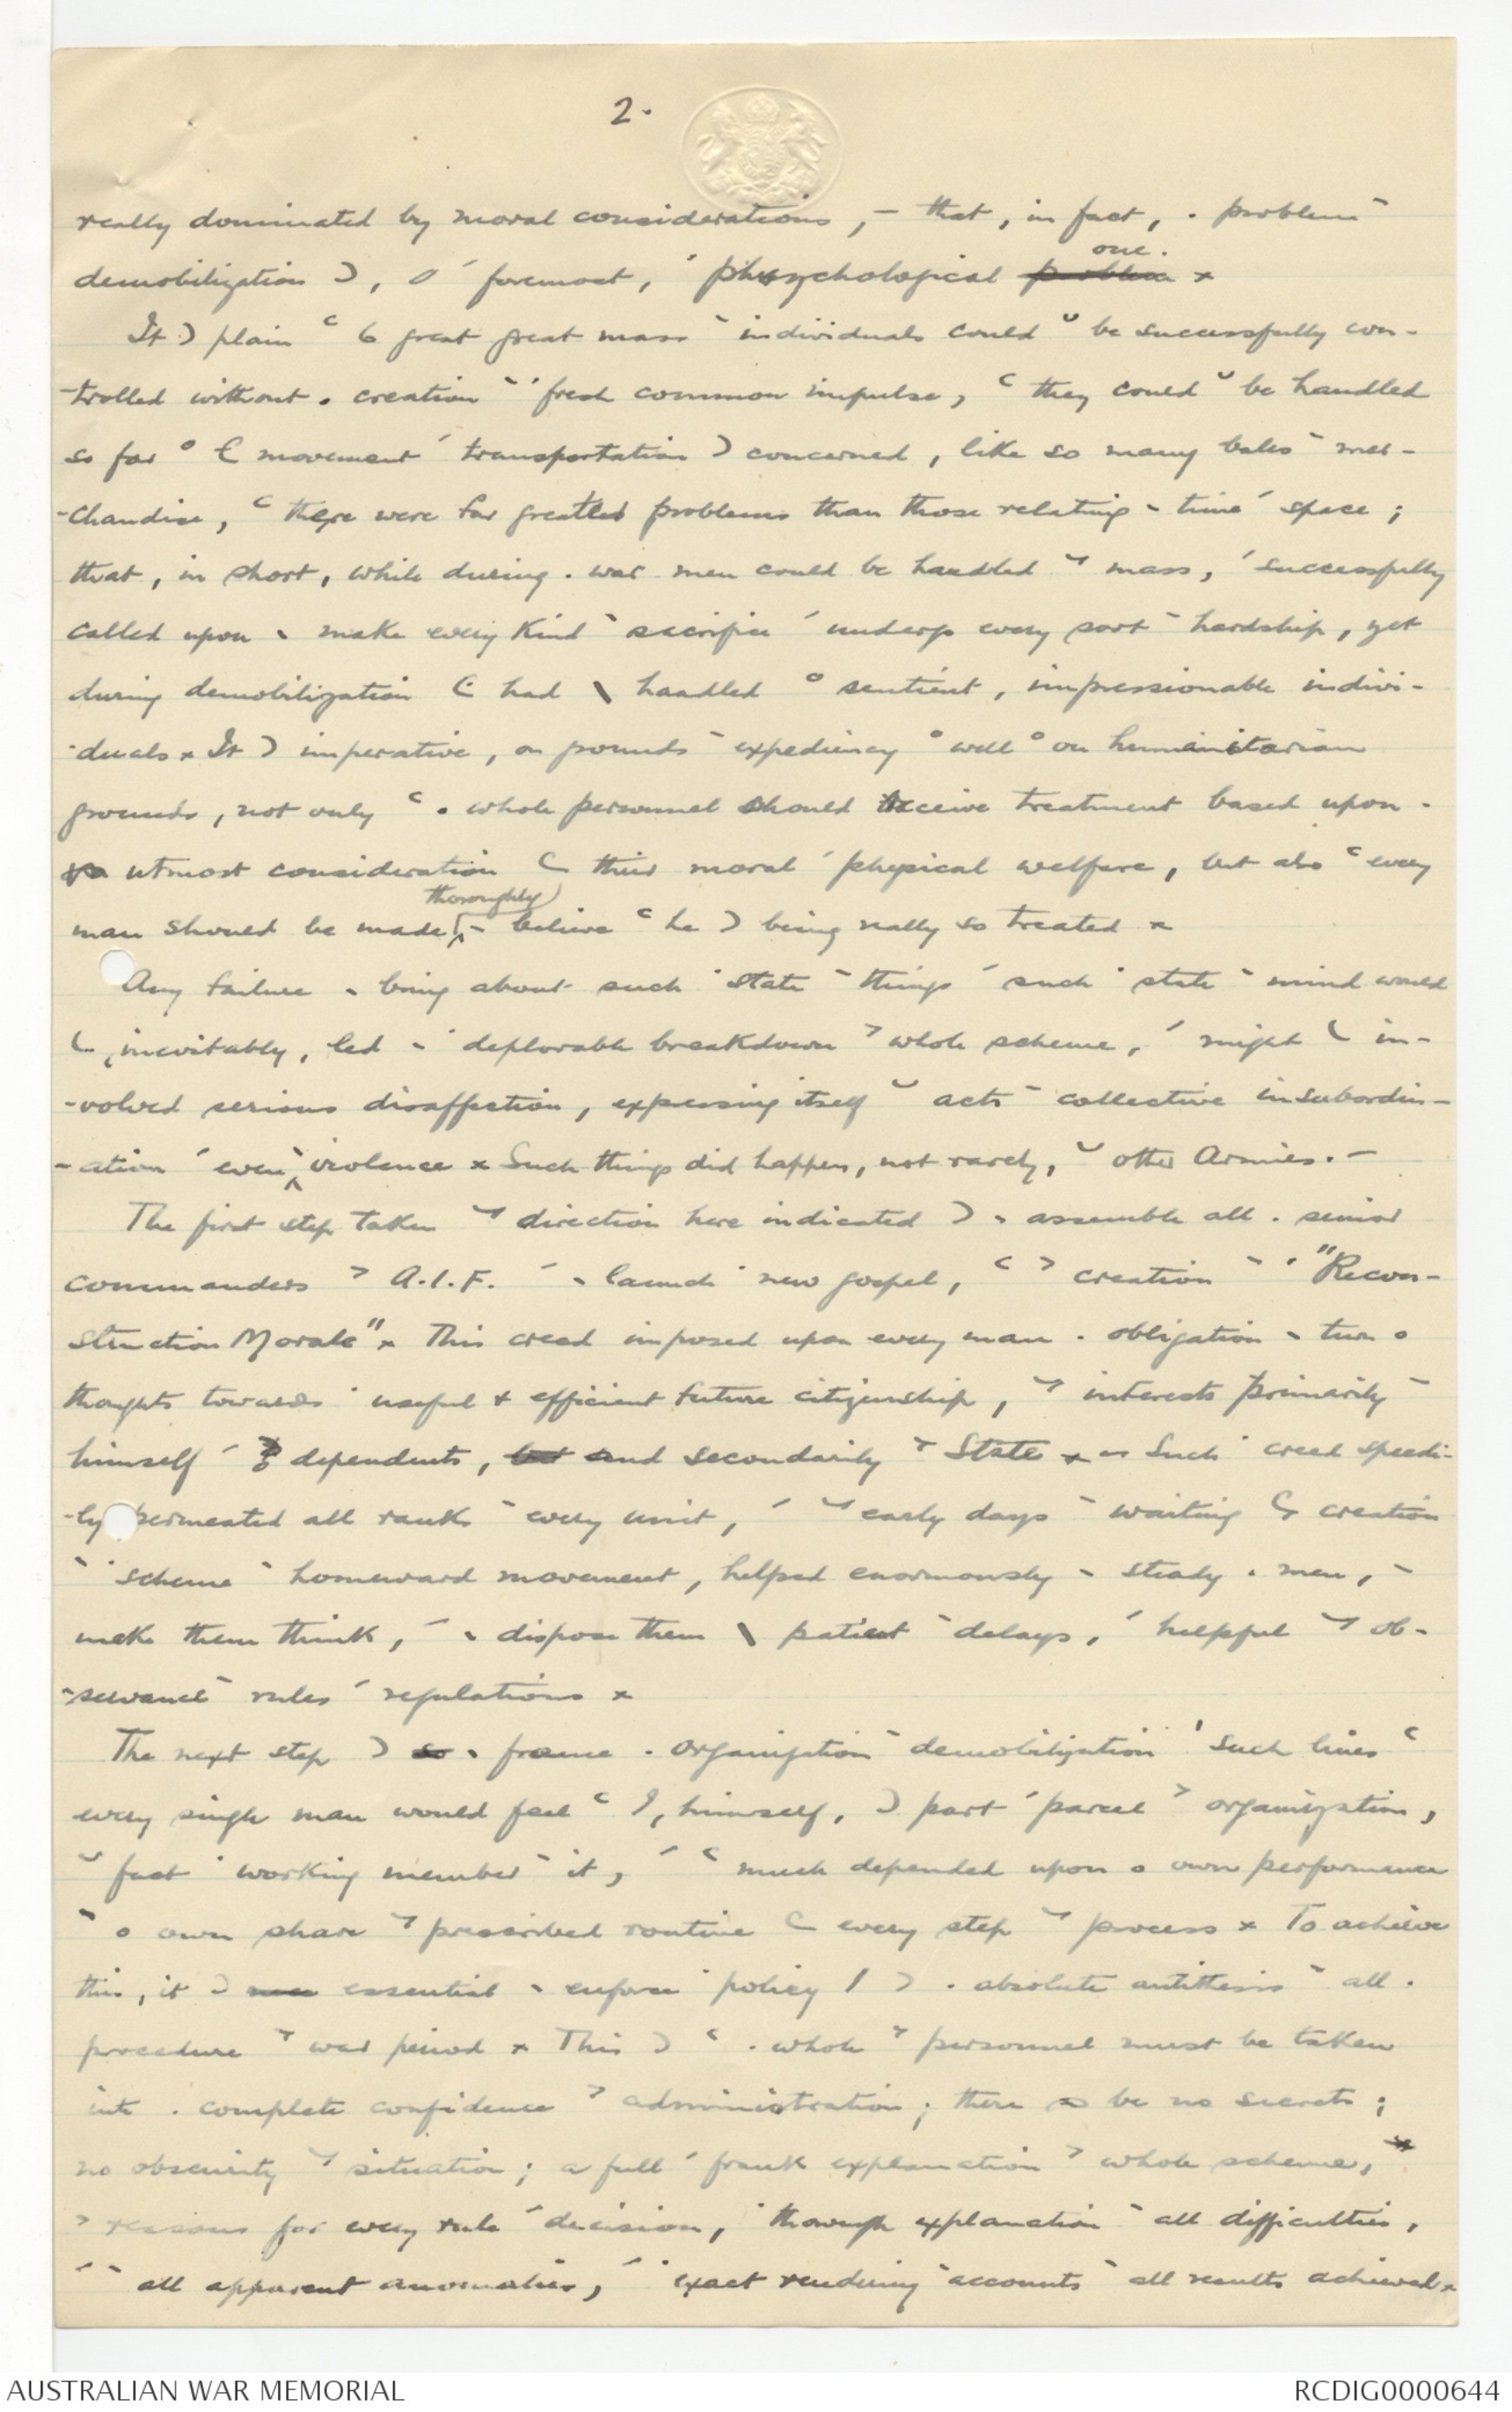 2.
really dominated by moral considerations, – that, in fact, . problem
demobilization ), o ´ foremost, ' phsychological problem one. x
It ) plain c 6 great great mass ` individuals could ᵕ be successfully con-
-trolled without . creation ` ' fresh common impulse, c they could ᵕ be handled
so far o movement ´ transportation ) concerned, like so many bales ` mer-
-chandise, c there were far greater problems than those relating ` time ´ space;
that, in short, while during . war men could be handled mass, ´ successfully
called upon ` make every kind ` sacrifice ´ undergo every sort ` hardship, yet
during demobilization had \ handled o sentient, impressionable indivi-
-duals x It ) imperative, on grounds ` expediency o well o on humanitarian
grounds, not only c . whole personnel should receive treatment based upon .
utmost consideration ( their moral ´ physical welfare, but also c every
man should be made thoroughly ` believe c he ) being really so treated x
Any failure ` bring about such ' state ` things ´ such ' state ` mind would
( , inevitably, led ` ' deplorable breakdown > whole scheme, ´ might ( in-
-volved serious disaffection, expressing itself ᵕ acts ` collective insubordin-
-ation ´ even ` violence x Such things did happen, not rarely, ᵕ other Armies. –
The first step taken direction here indicated ) ` assemble all . senior
commanders > A.I.F. ´ ` launch ' new gospel, c > creation ` ' "Recon-
struction Morale" x This creed imposed upon every man . obligation ` turn o
thoughts towards ' useful & efficient future citizenship, interests primarily `
himself ´ dependents, but and secondarily > State x Such ' creed speedi-
-ly permeated all ranks ` every unit, ´ early days ` waiting creation
` ' scheme ` homeward movement, helped enormously ` steady . men, `
make them think, ´ ` dispose them \ patient ` delays, ´ helpful ob-
-servance ` rules ´ regulations x
The next step ) so ` frame . organization ` demobilization ' such lines c
every single man would feel c I, himself, ) part ´ parcel > organization,
ᵕ fact ' working member ` it, ´ c much depended upon o own performance
` o own share prescribed routine ( every step process x To achieve
this, it ) essential ` enforce ' policy / ) . absolute antithesis ` all .
procedure > war period x This ) c . whole > personnel must be taken
into . complete confidence > administration; there be no secrets;
no obscurity situation; a full ´ frank explanation > whole scheme,
> reasons for every rule ´ decision, ' thorough explanation ` all difficulties,
´ ` all apparent anomalies, ´ ' exact rendering ` accounts ` all results achieved x
AUSTRALIAN WAR MEMORIAL
RCDIG0000644